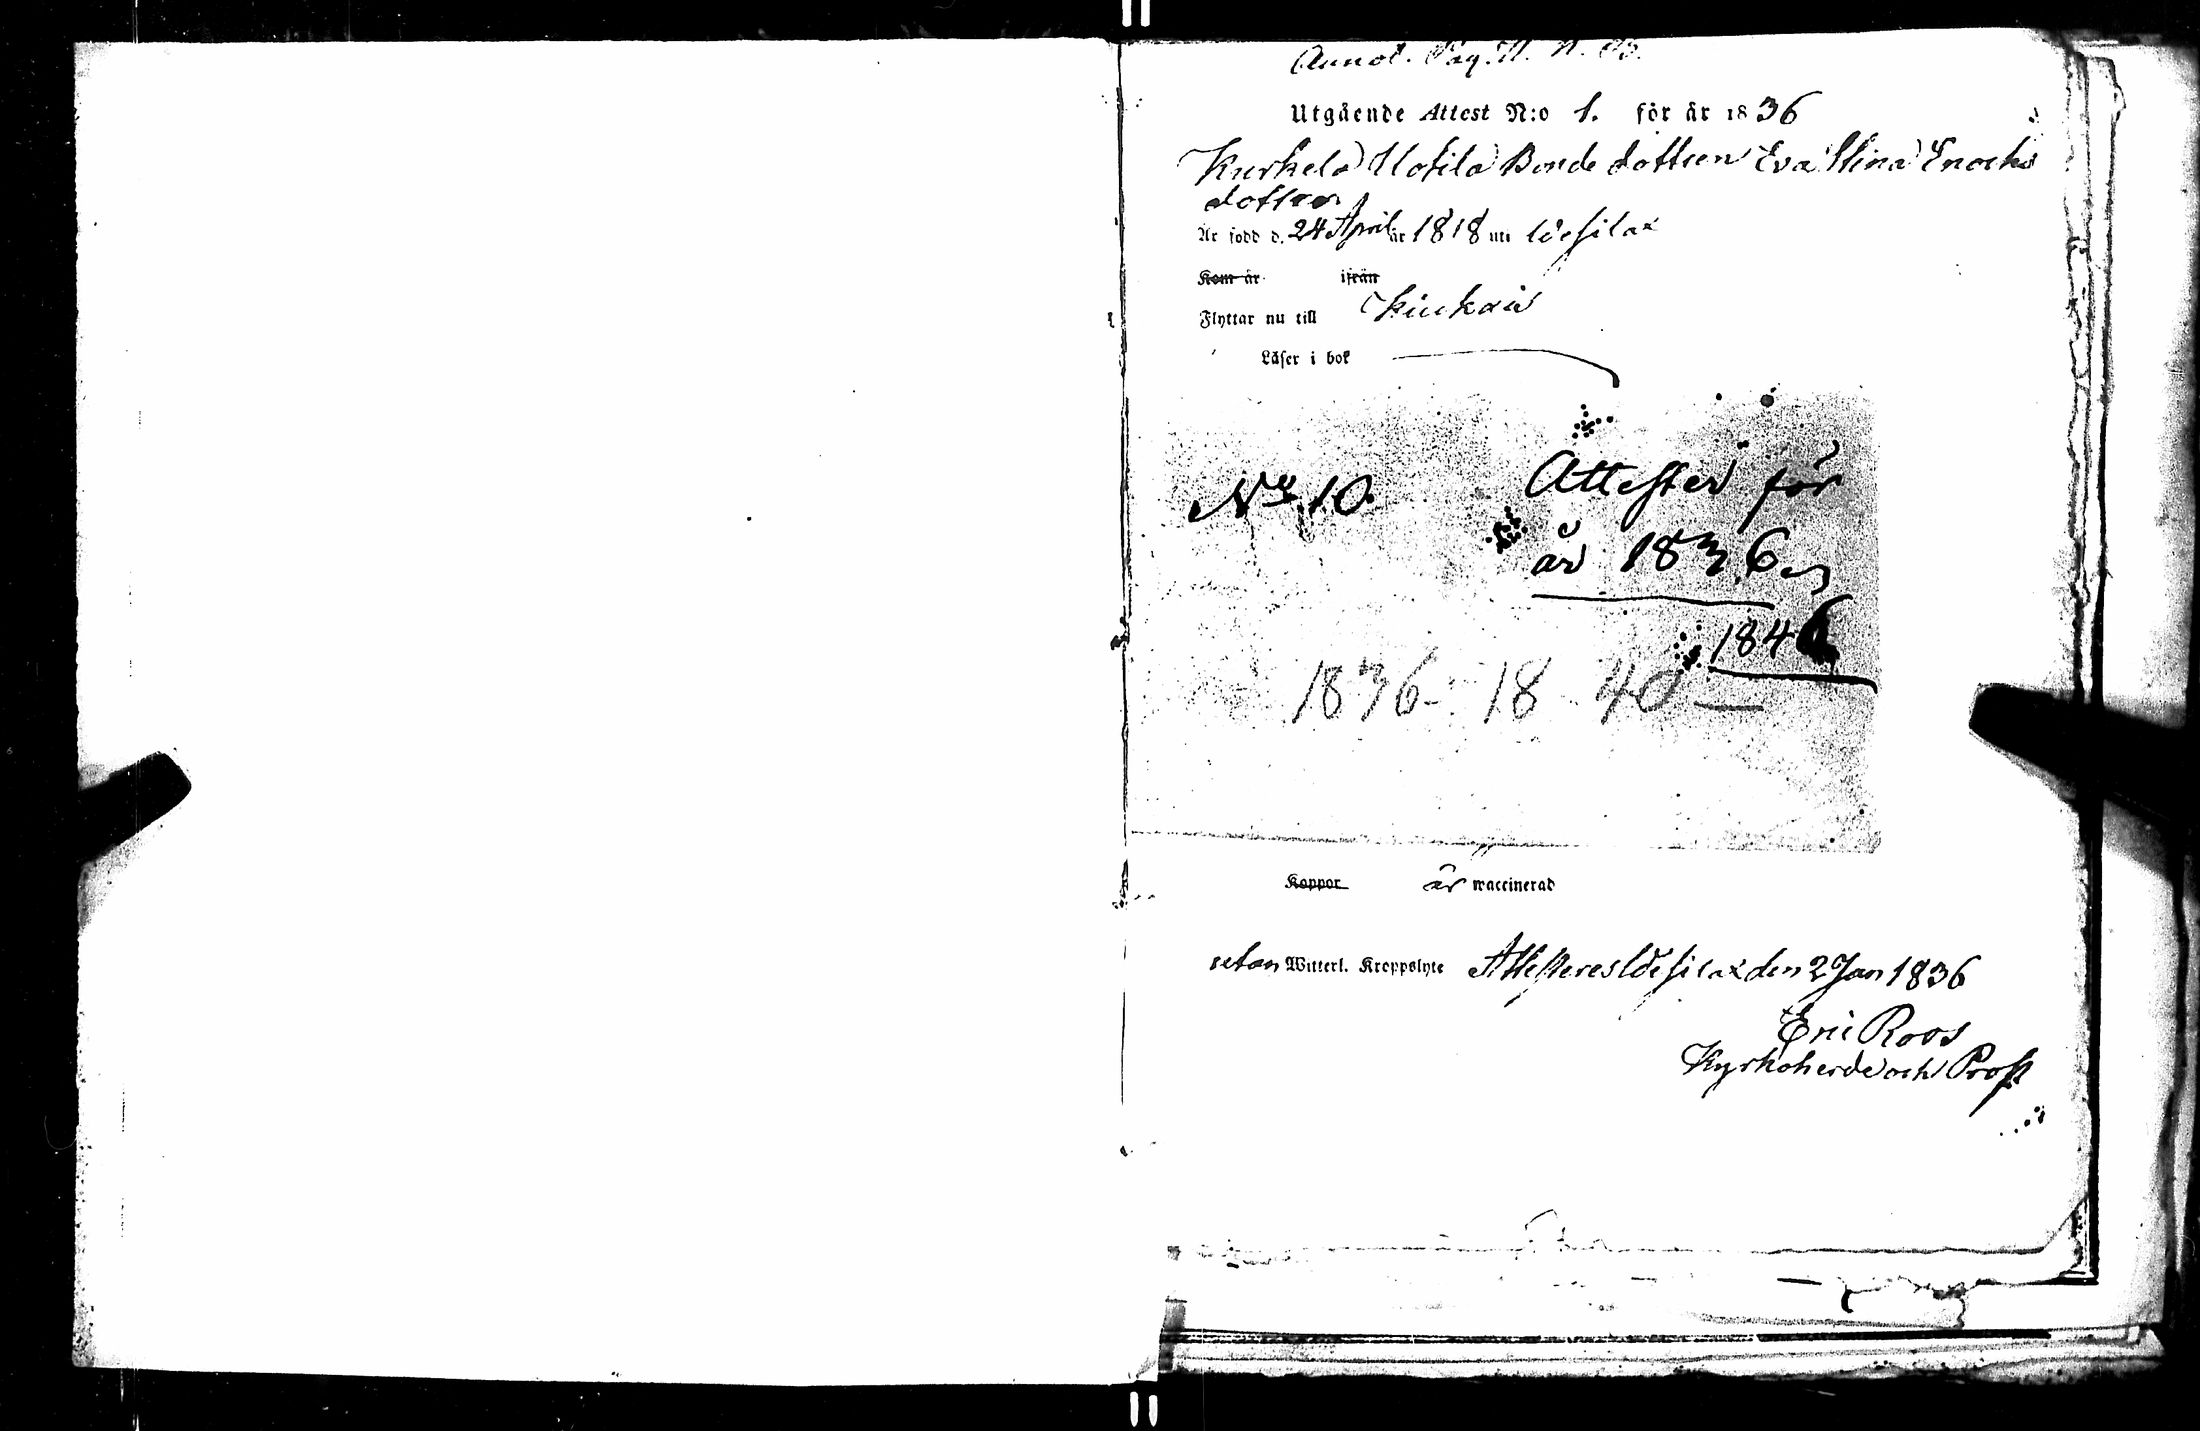 Annot. Pag. N.
Utgående Attest N:o 1. för år 1836
Kurkela Uotila Bonde dottren Eva Stina Enochs
dotter
Är född d. 24 April år 1818 uti Wesilax
Kom år ifrån
Flyttar nu till Kiukais
Läser i bok
No 10. Attester för
år 1836 en
1846
1836 - 18 40 —
Koppor är waccinerad
utan Witterl. Kroppslyte Attesteres Wesilax den 2 Jan 1836
Eric Roos
Kyrkoherde och Prost